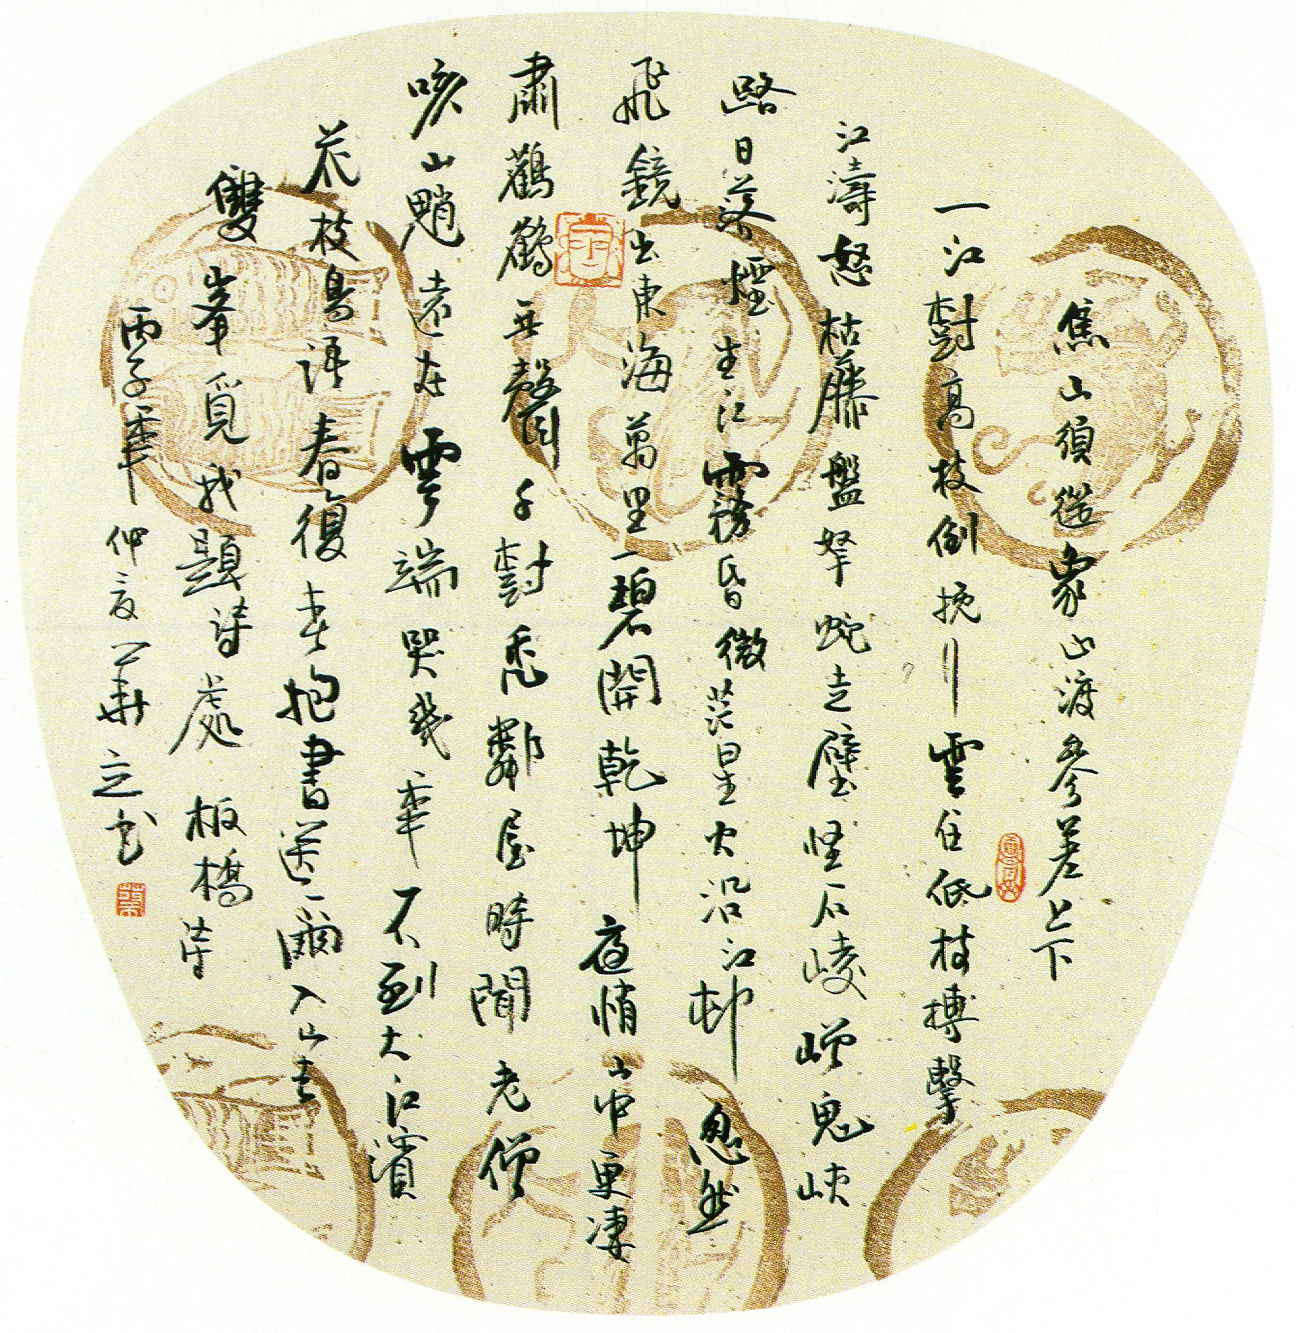 焦山須從象山渡參差上下
一江樹高枝倒挽行雲住低枝搏擊
江濤怒枯藤盤拏蛇走壁怪石崚嶒鬼峽
路日落煙生江霧昏微茫星火沿江邨忽然
飛鏡出東海萬里一碧開乾坤夜悄山中更淒
肅鸛鶴無聲千樹禿鄰屋時聞老僧
咳山魈遠在雲端哭幾年不到大江濱
花枝鳥語春復春抱書送爾入山去
雙峯覓我題詩處 板橋詩
丙子年仲夏 立书